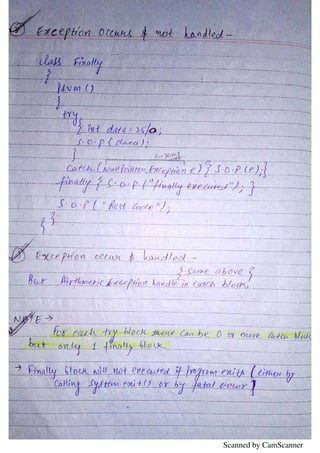 Exception occurs & not handled -
class Finally
{
psvm ()
{
try
{ int data = 25/0;
S.o.p (data);
}
catch (NullPointerException e) { S.o.p (e); }
finally { S.o.p ("finally executed"); }
S.o.p ( "Rest code");
} }
Exception occur & handled -
{ Same above }
But Airthmetic Exception handle in catch block.
NOTE →
for each try block there can be 0 or more catch block
but only 1 finally block.
→ Finally block will not executed if program exits (either by
calling System.exit() or by fatal error]
Scanned by CamScanner